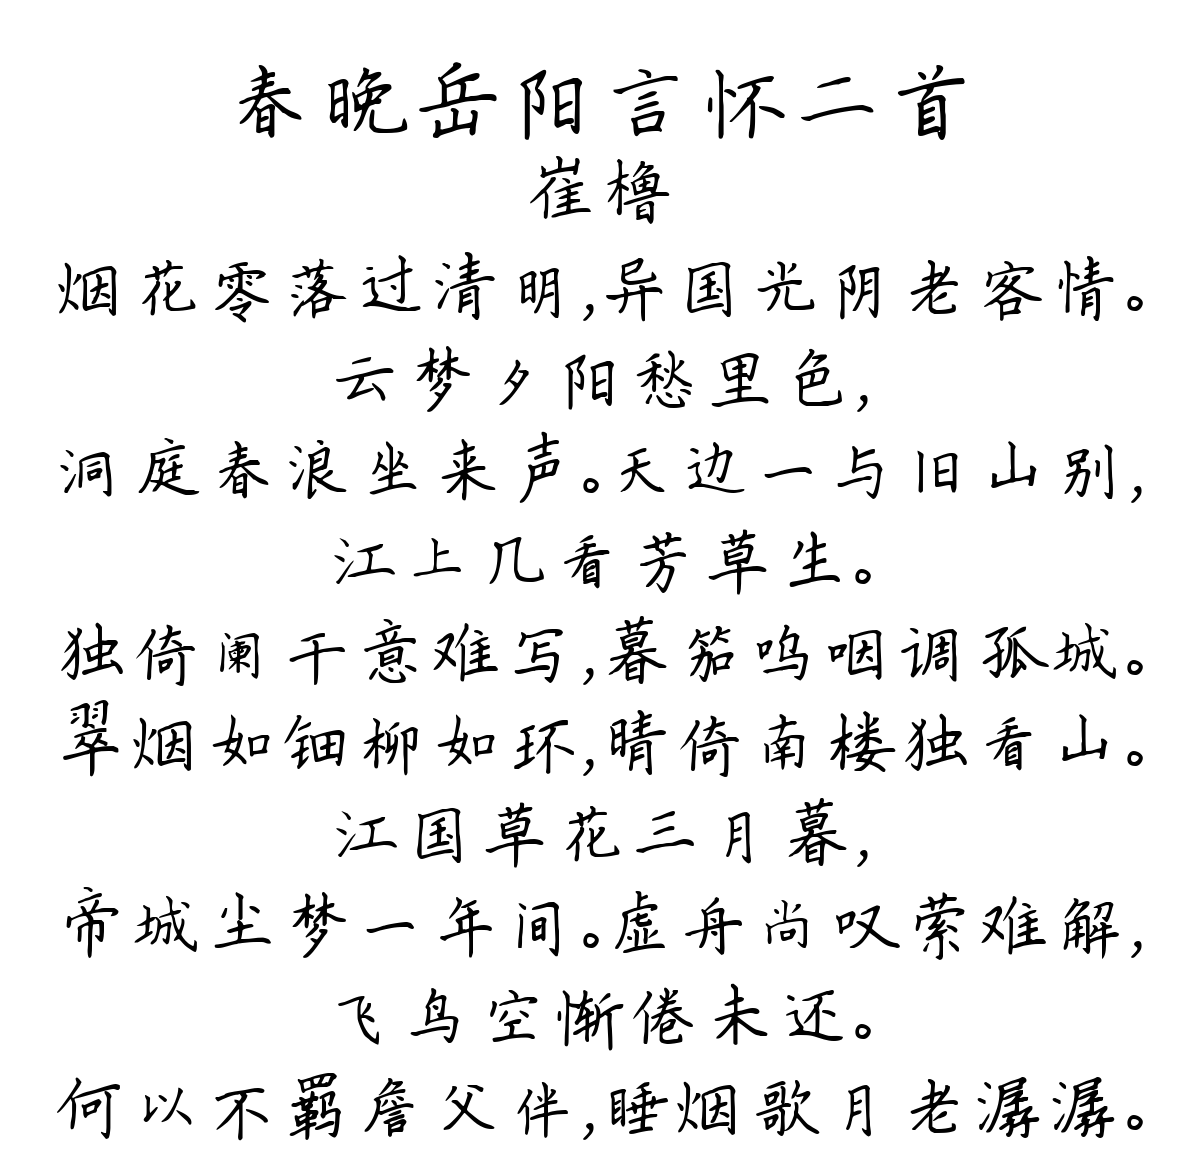 春晚岳阳言怀二首
崔橹
烟花零落过清明,异国光阴老客情。
云梦夕阳愁里色,
洞庭春浪坐来声。天边一与旧山别,
江上几看芳草生。
独倚阑干意难写,暮笳呜咽调孤城。
翠烟如钿柳如环,晴倚南楼独看山。
江国草花三月暮,
帝城尘梦一年间。虚舟尚叹萦难解,
飞鸟空惭倦未还。
何以不羁詹父伴,睡烟歌月老潺潺。